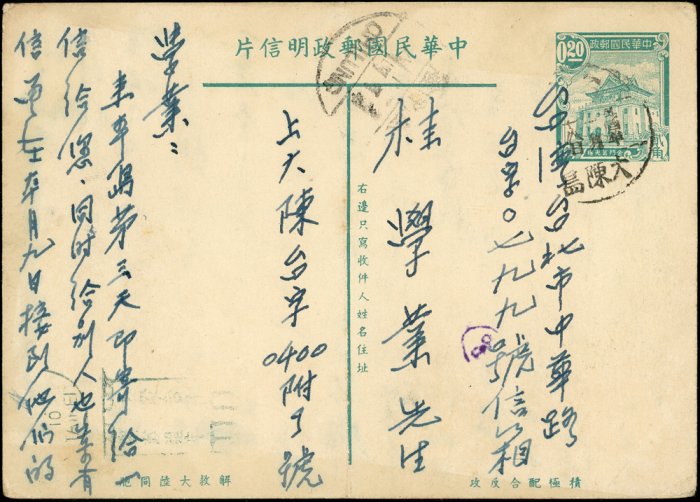 中華民國郵政明信片
中華民國郵政
0.20
大陳島
台北市中華路
台字0七九九號信箱
桂學業先生
右邊只寫收件人姓名住址
上大陳台字0400附丁號
學業：
來 島第三天即寄給一
信給您，同時給別人也 有
信 在本月九日接到他們的
積極配合反攻
解救大陸同胞